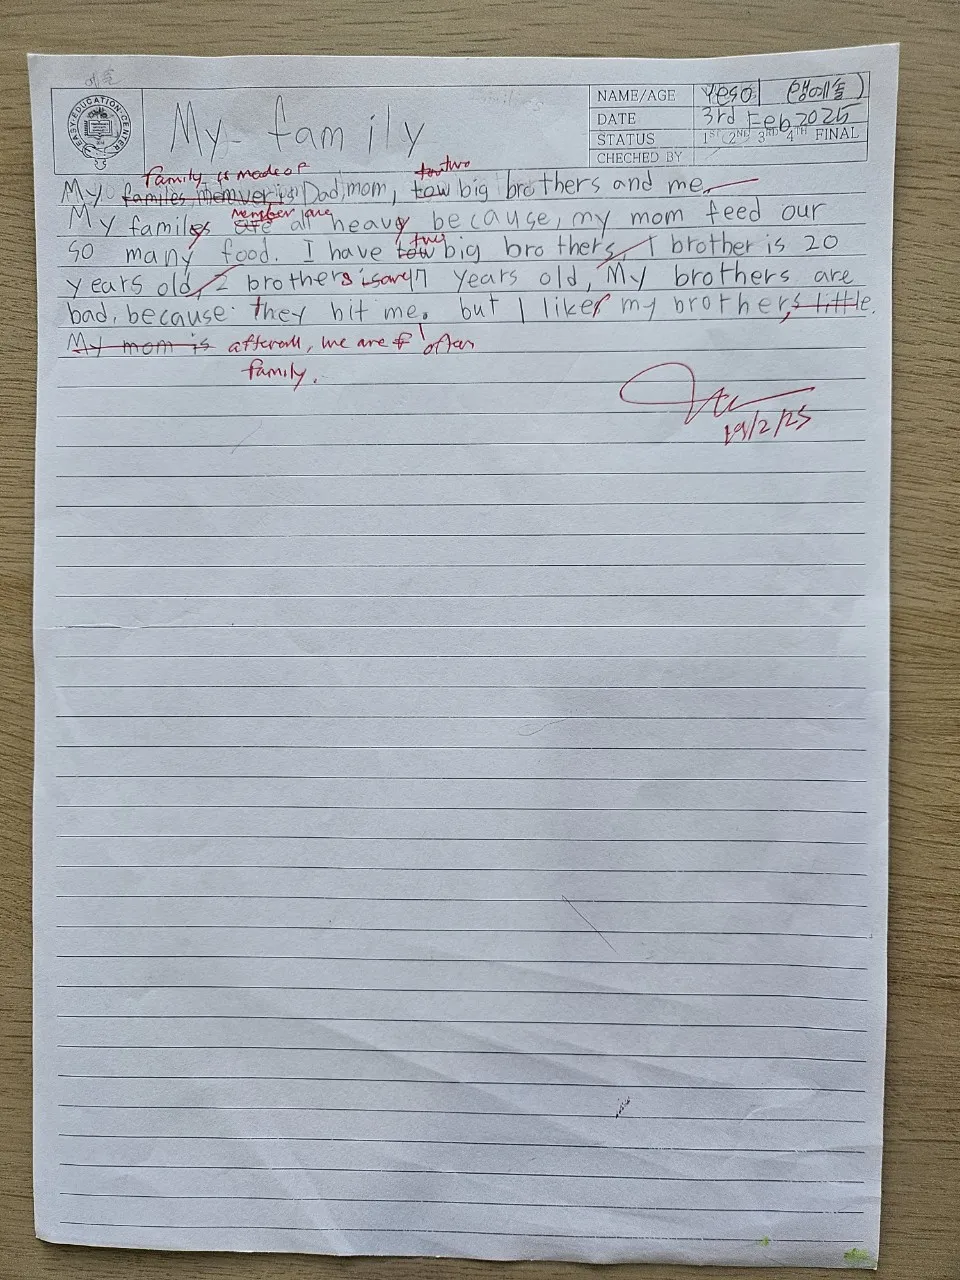 예솔
EASY EDUCATION CENTER
My family
NAME/AGE Yesol (예솔)
DATE 3rd Feb 2025
STATUS 1ST 2ND 3RD 4TH FINAL
CHECHED BY
family is made of two
My familes is Dad, mom, tow big brothers and me.
member are
My familes are all heavy because, my mom feed our
two
so many food. I have tow big brothers, 1 brother is 20
years old, 2 brothers is 17 years old, My brothers are
bad, because they hit me. but I like my brothers, little.
My mom is after all, we are often
family.
19/2/25